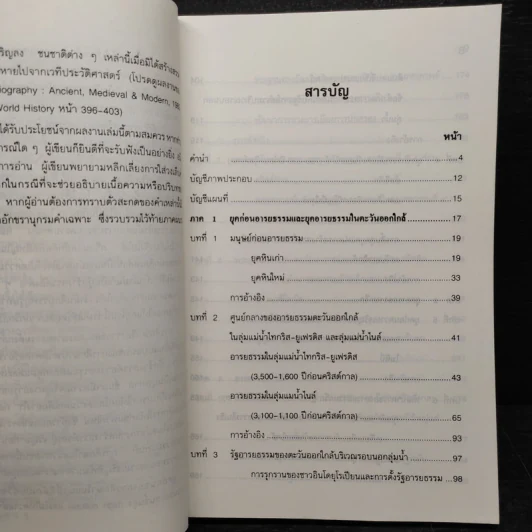 ริญลง ชนชาติต่าง ๆ เหล่านี้เมื่อมิได้สร้างสรร
หายไปจากเวทีประวัติศาสตร์ (โปรดดูผลงานของ
iography : Ancient, Medieval & Modern,
World History หน้า 396-403)
ได้รับประโยชน์จากผลงานเล่มนี้ตามสมควร หาก
กรณีใด ๆ ผู้เขียนก็ยินดีที่จะรับฟังเป็นอย่างยิ่ง
การอ่าน ผู้เขียนพยายามหลีกเลี่ยงการใส่วงเล็บ
กในกรณีที่จะช่วยอธิบายเนื้อความหรือปรับ
หากผู้อ่านต้องการทราบตัวสะกดของคำเหล่านั้น
อักขรานุกรมคำเฉพาะ ซึ่งรวบรวมไว้ท้ายภาคผนวก
สารบัญ
หน้า
คำนำ 4
บัญชีภาพประกอบ 12
บัญชีแผนที่ 15
ภาค 1 ยุคก่อนอารยธรรมและยุคอารยธรรมในตะวันออกใกล้ 17
บทที่ 1 มนุษย์ก่อนอารยธรรม 19
ยุคหินเก่า 19
ยุคหินใหม่ 33
การอ้างอิง 39
บทที่ 2 ศูนย์กลางของอารยธรรมตะวันออกใกล้
ในลุ่มแม่น้ำไทกริส-ยูเฟรติส และลุ่มแม่น้ำไนล์ 41
อารยธรรมในลุ่มแม่น้ำไทกริส-ยูเฟรติส
(3,500-1,600 ปีก่อนคริสต์กาล) 43
อารยธรรมในลุ่มแม่น้ำไนล์
(3,100-1,100 ปีก่อนคริสต์กาล) 65
การอ้างอิง 93
บทที่ 3 รัฐอารยธรรมของตะวันออกใกล้บริเวณรอบนอกลุ่มน้ำ 97
การรุกรานของชาวอินโดยุโรเปียนและการตั้งรัฐอารยธรรม 98